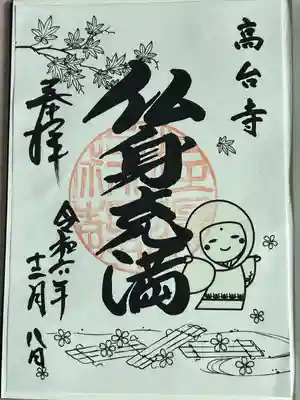 高台寺
仏身充満
奉拝
令和六年
十二月八日